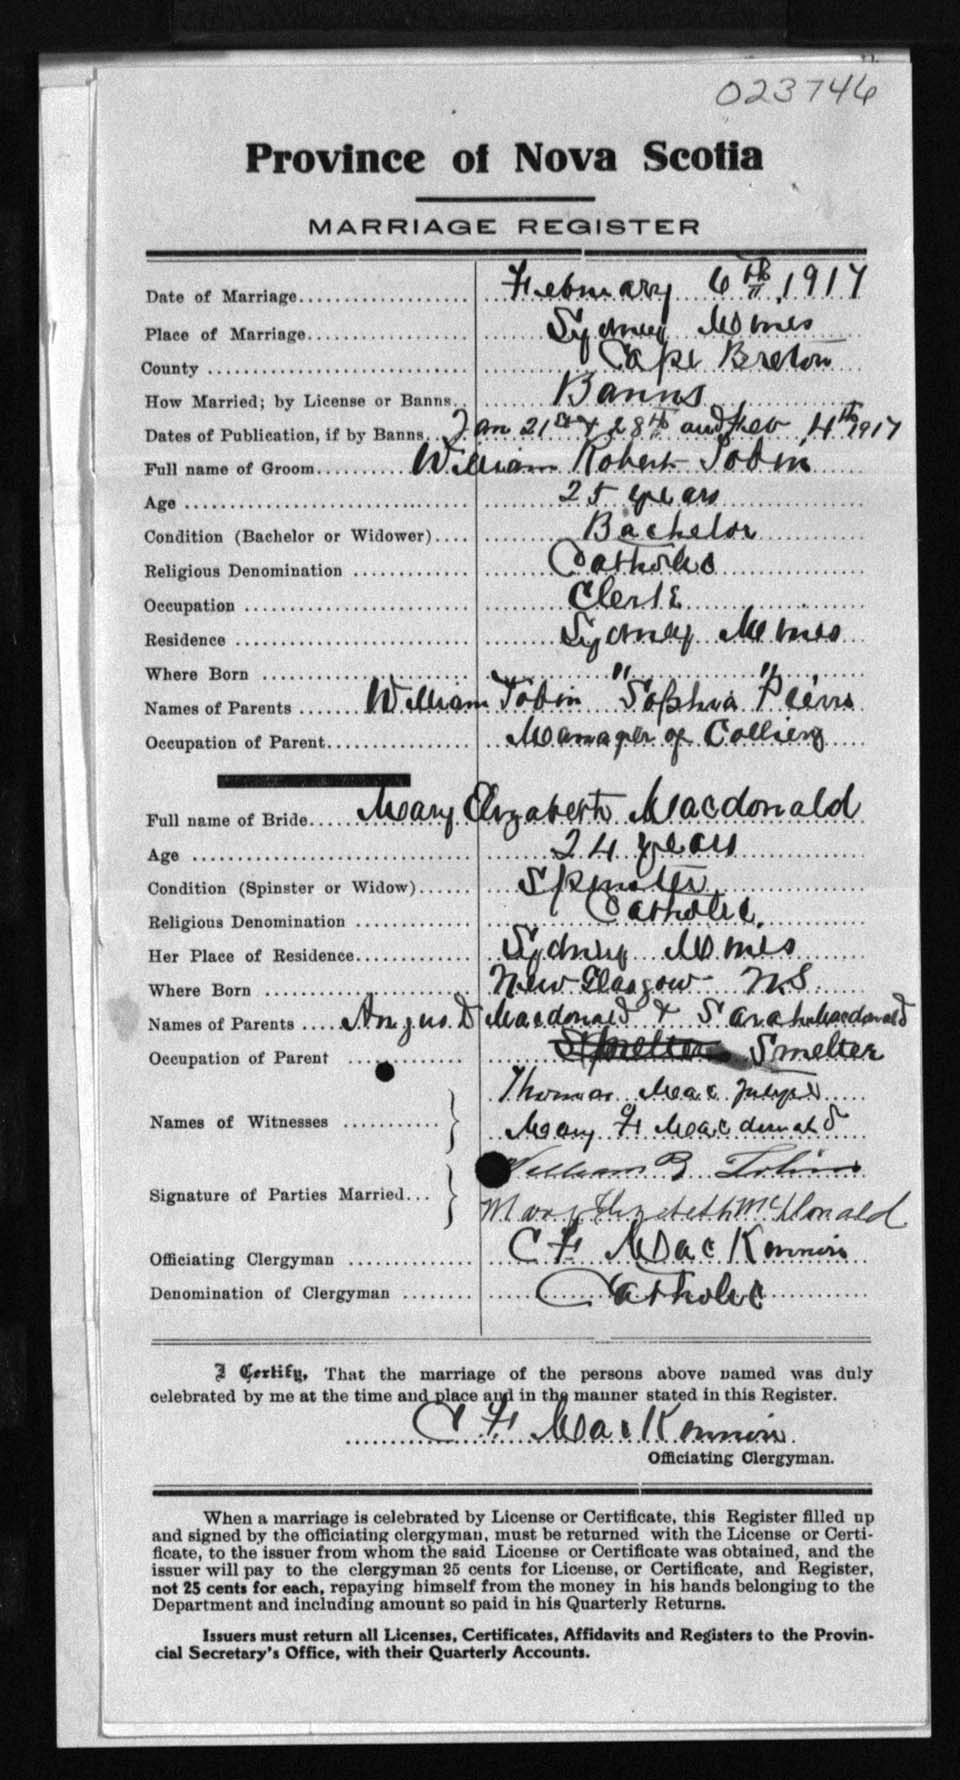 023746
Province of Nova Scotia
MARRIAGE REGISTER
Date of Marriage.................... February 6th 1917
Place of Marriage.................... Sydney Mines
County .................... Cape Breton
How Married; by License or Banns.. Banns
Dates of Publication, if by Banns.. Jan 21st & 28th and Feb 4th 1917
Full name of Groom.................... William Robert Tobin
Age .................... 25 years
Condition (Bachelor or Widower).... Bachelor
Religious Denomination .................... Catholic
Occupation .................... Clerk
Residence .................... Sydney Mines
Where Born .................... " "
Names of Parents ....... William Tobin Sophia
Occupation of Parent.................... Manager of Colliery
Full name of Bride..... Mary Elizabeth Macdonald
Age .................... 24 years
Condition (Spinster or Widow)...... Spinster
Religious Denomination ............. Catholic.
Her Place of Residence............. Sydney Mines
Where Born .................... New Glasgow N.S.
Names of Parents .... Angus D Macdonald & Sarah Macdonald
Occupation of Parent ............ Smelter
Names of Witnesses ........... } Thomas Mac
Mary F Macdonald
Signature of Parties Married... } William R Tobin
Mary Elizabeth McDonald
Officiating Clergyman .............. C F MacKinnon
Denomination of Clergyman ........ Catholic
I Certify, That the marriage of the persons above named was duly
celebrated by me at the time and place and in the manner stated in this Register.
C F MacKinnon
Officiating Clergyman.
When a marriage is celebrated by License or Certificate, this Register filled up
and signed by the officiating clergyman, must be returned with the License or Certi-
ficate, to the issuer from whom the said License or Certificate was obtained, and the
issuer will pay to the clergyman 25 cents for License, or Certificate, and Register,
not 25 cents for each, repaying himself from the money in his hands belonging to the
Department and including amount so paid in his Quarterly Returns.
Issuers must return all Licenses, Certificates, Affidavits and Registers to the Provin-
cial Secretary's Office, with their Quarterly Accounts.